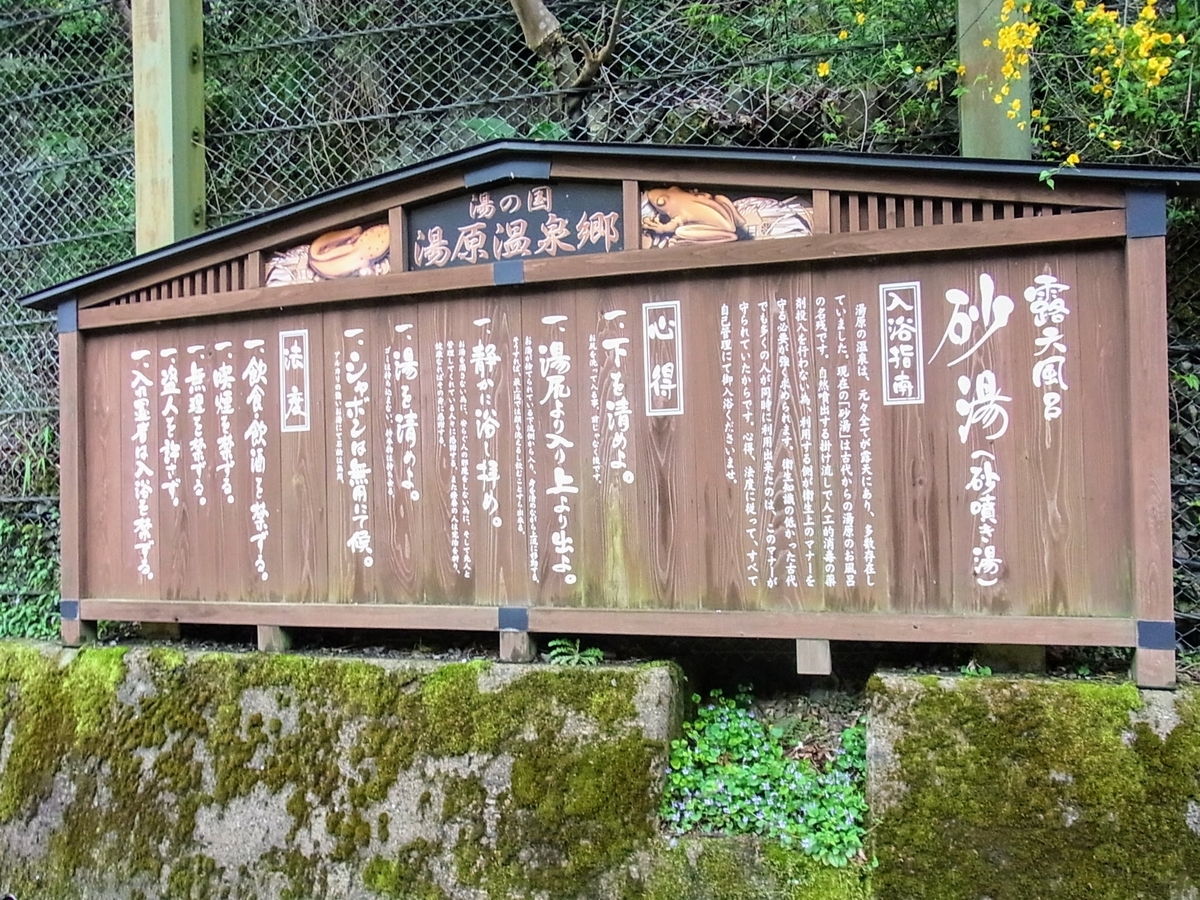 湯の国
湯原温泉郷
露天風呂
砂湯(砂噴き湯)
入浴指南
湯原の温泉は、元々全てが露天にあり、多数存在し
ていました。現在の「砂湯」は古代からの湯原のお風呂
の名残です。自然噴出する掛け流しで人工的消毒の薬
剤投入を行わない為、利用する側が衛生上のマナーを
守る必要が強く求められます。衛生知識の低かった古代
でも多くの人が同時に利用出来たのは、このマナーが
守られていたからです。心得、法度に従って、すべて
自己管理にて御入浴くださいませ。
心得
一、下を清めよ。
一、湯尻より入り上より出よ。
一、静かに浴し拝め。
一、湯を清めよ。
一、シャボンは無用にて候。
法度
一、飲食飲酒を禁ずる。
一、喫煙を禁ずる。
一、無理を禁ずる。
一、盗人を許さず。
一、入れ墨者は入浴を禁ずる。